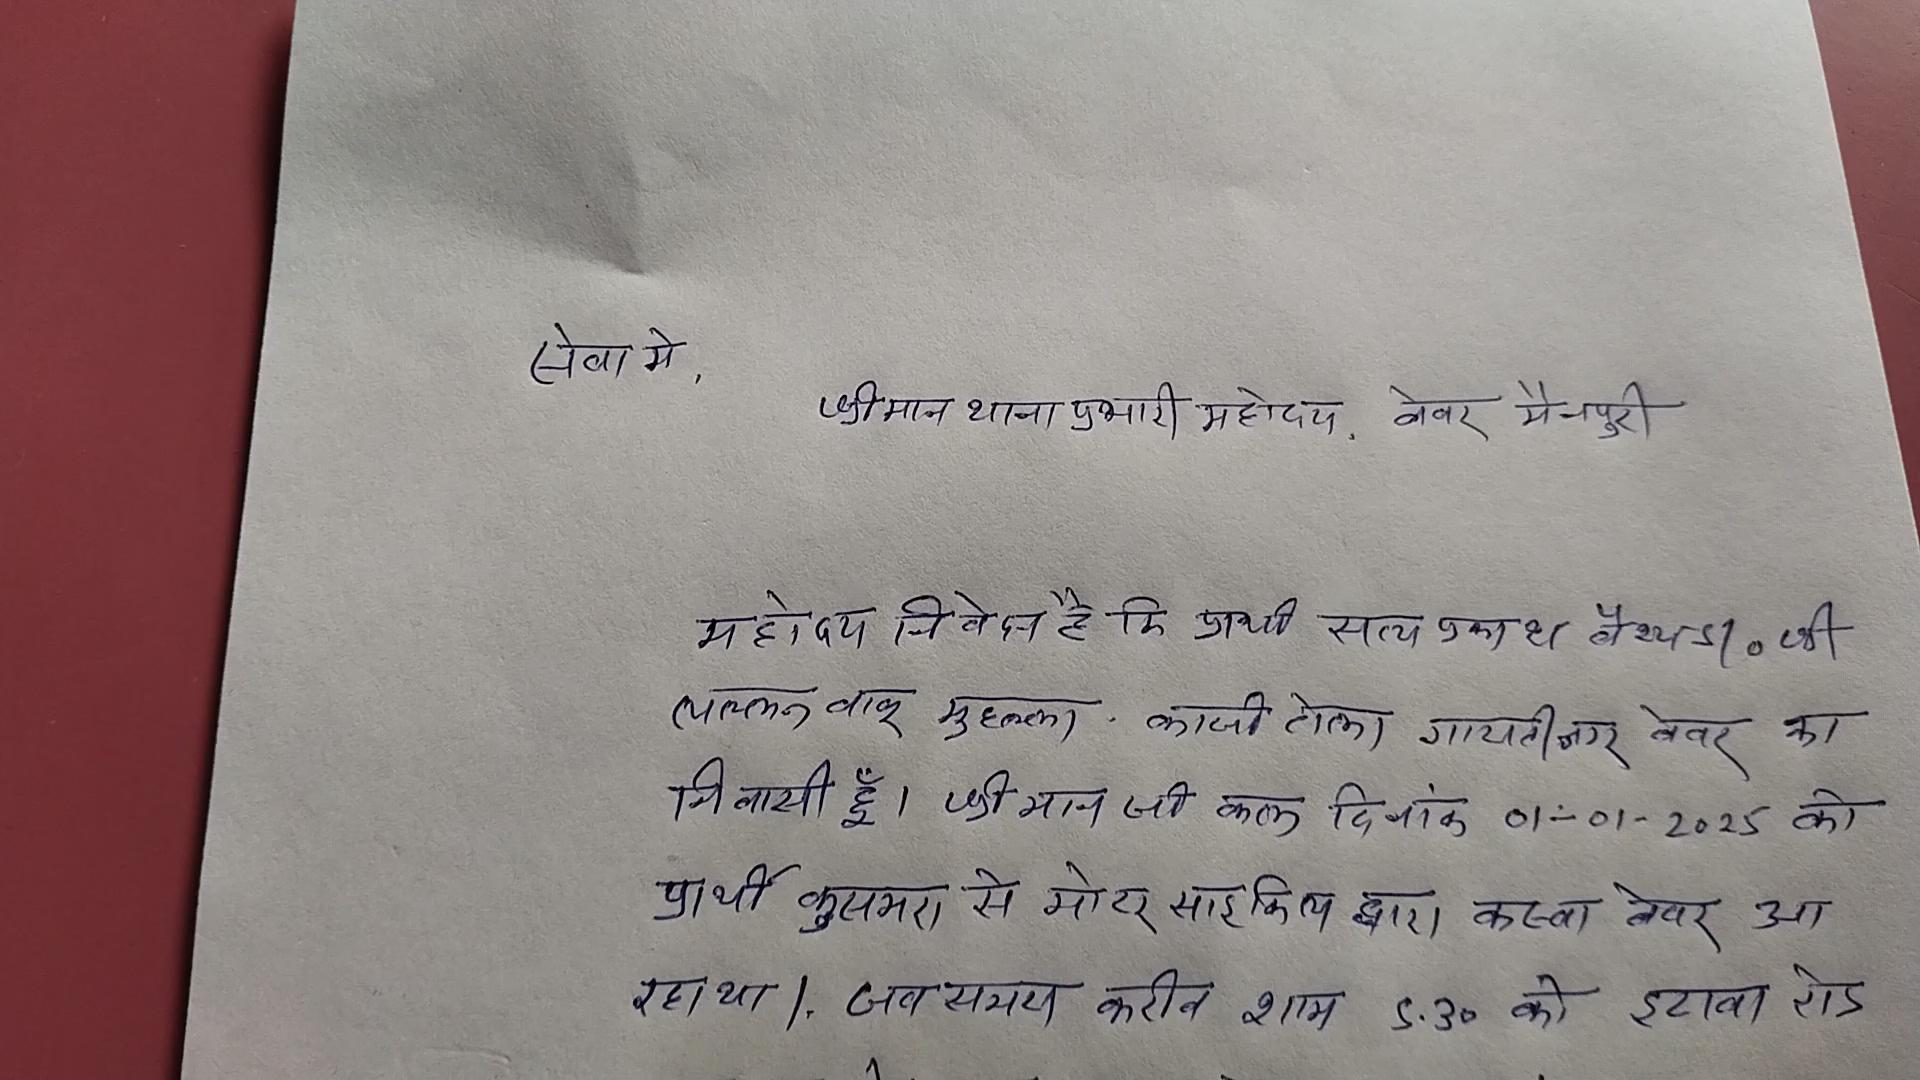 सेवा मे,
श्रीमान थाना प्रभारी महोदय, बेवर मैनपुरी
महोदय निवेदन है कि प्रार्थी सत्य प्रकाश वैश्य S/० श्री
लल्लन बाबू मुहल्ला . काजी टोला गायत्री नगर बेवर का
निवासी हूँ। श्री मान जी कल दिनांक 01-01-2025 को
प्रार्थी कुसमरा से मोटर साइकिल द्वारा कस्बा बेवर आ
रहा था।. जब समय करीब शाम 5.30 को इटावा रोड